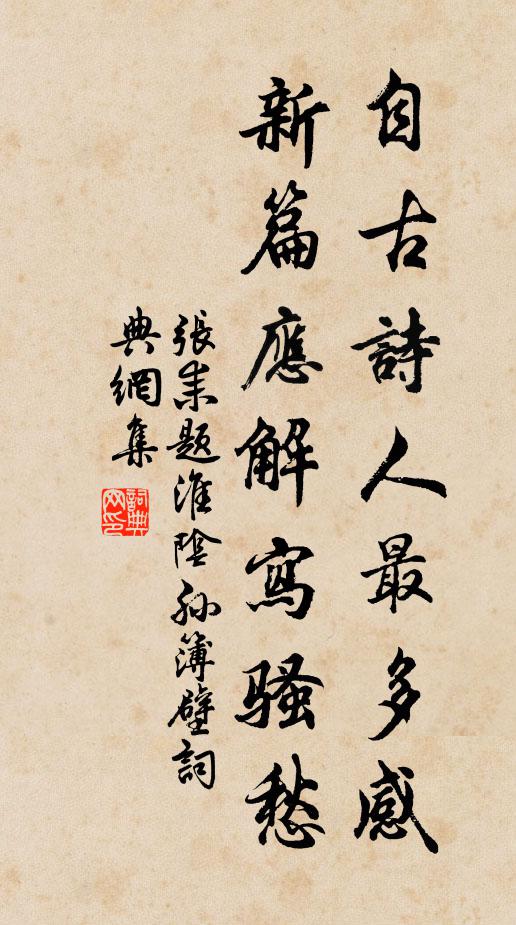 自古詩人最多感
新篇應解寫騷愁
張耒題淮陰孙簿壁詞
典網集
詞典
网印